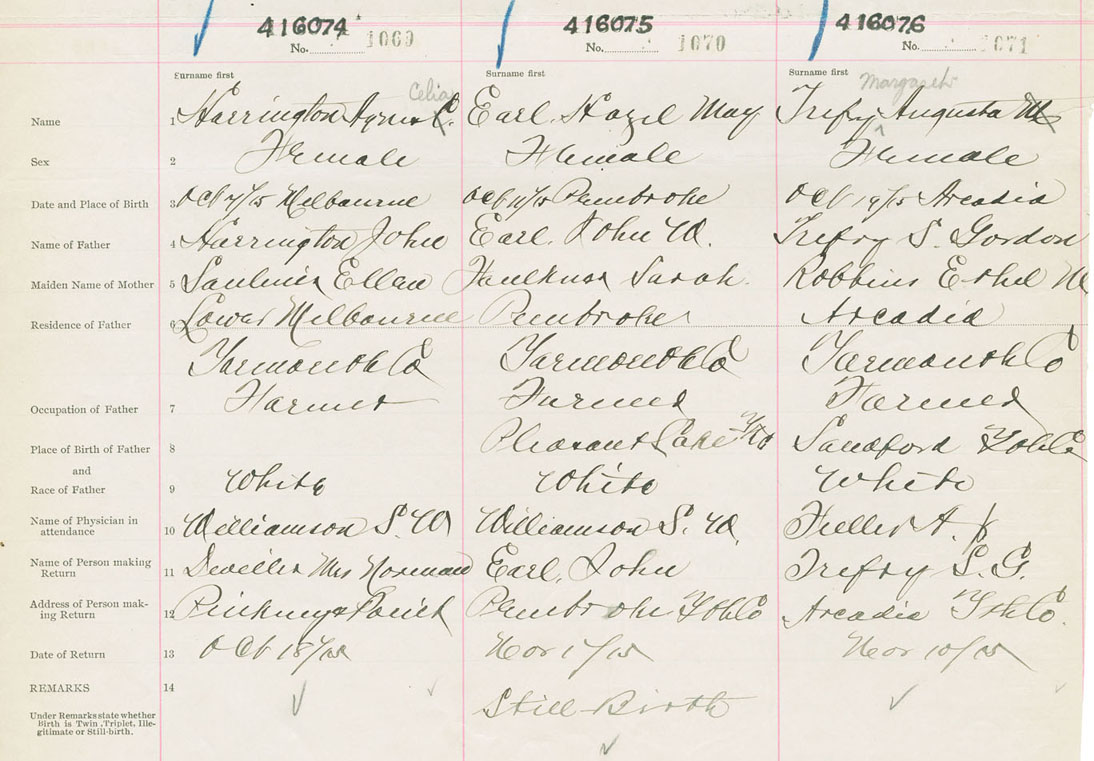 416074 416075 416076
No. 1069 No. 1070 No. 1071
Surname first Surname first Surname first
Celia Margaret
Name 1 Harrington Agnes C. Earl. Hazel May Trefry Augusta M
Sex 2 Female Female Female
Date and Place of Birth 3 Oct /15 Melbourne Oct /15 Pembroke Oct 19/15 Arcadia
Name of Father 4 Harrington John Earl. John W. Trefry S. Gordon
Maiden Name of Mother 5 Saulnier Ellen Faulkner Sarah. Robbins Ethel M
Residence of Father 6 Lower Melbourne Pembroke Arcadia
Yarmouth Co Yarmouth Co Yarmouth Co
Occupation of Father 7 Farmer Farmer Farmer
Place of Birth of Father 8 Pleasant Lake Sandford
and
Race of Father 9 White White White
Name of Physician in attendance 10 Williamson S. W Williamson S. W. Fuller A. J
Name of Person making Return 11 Develler Mrs Norman Earl, John Trefry S. G.
Address of Person mak-ing Return 12 Pinkney's Point Pembroke Arcadia Yth Co.
Date of Return 13 Oct 18/15 Nov 1/15 Nov 10/15
REMARKS 14
Under Remarks state whether Birth is Twin, Triplet, Ille-gitimate or Still-birth. Still Birth